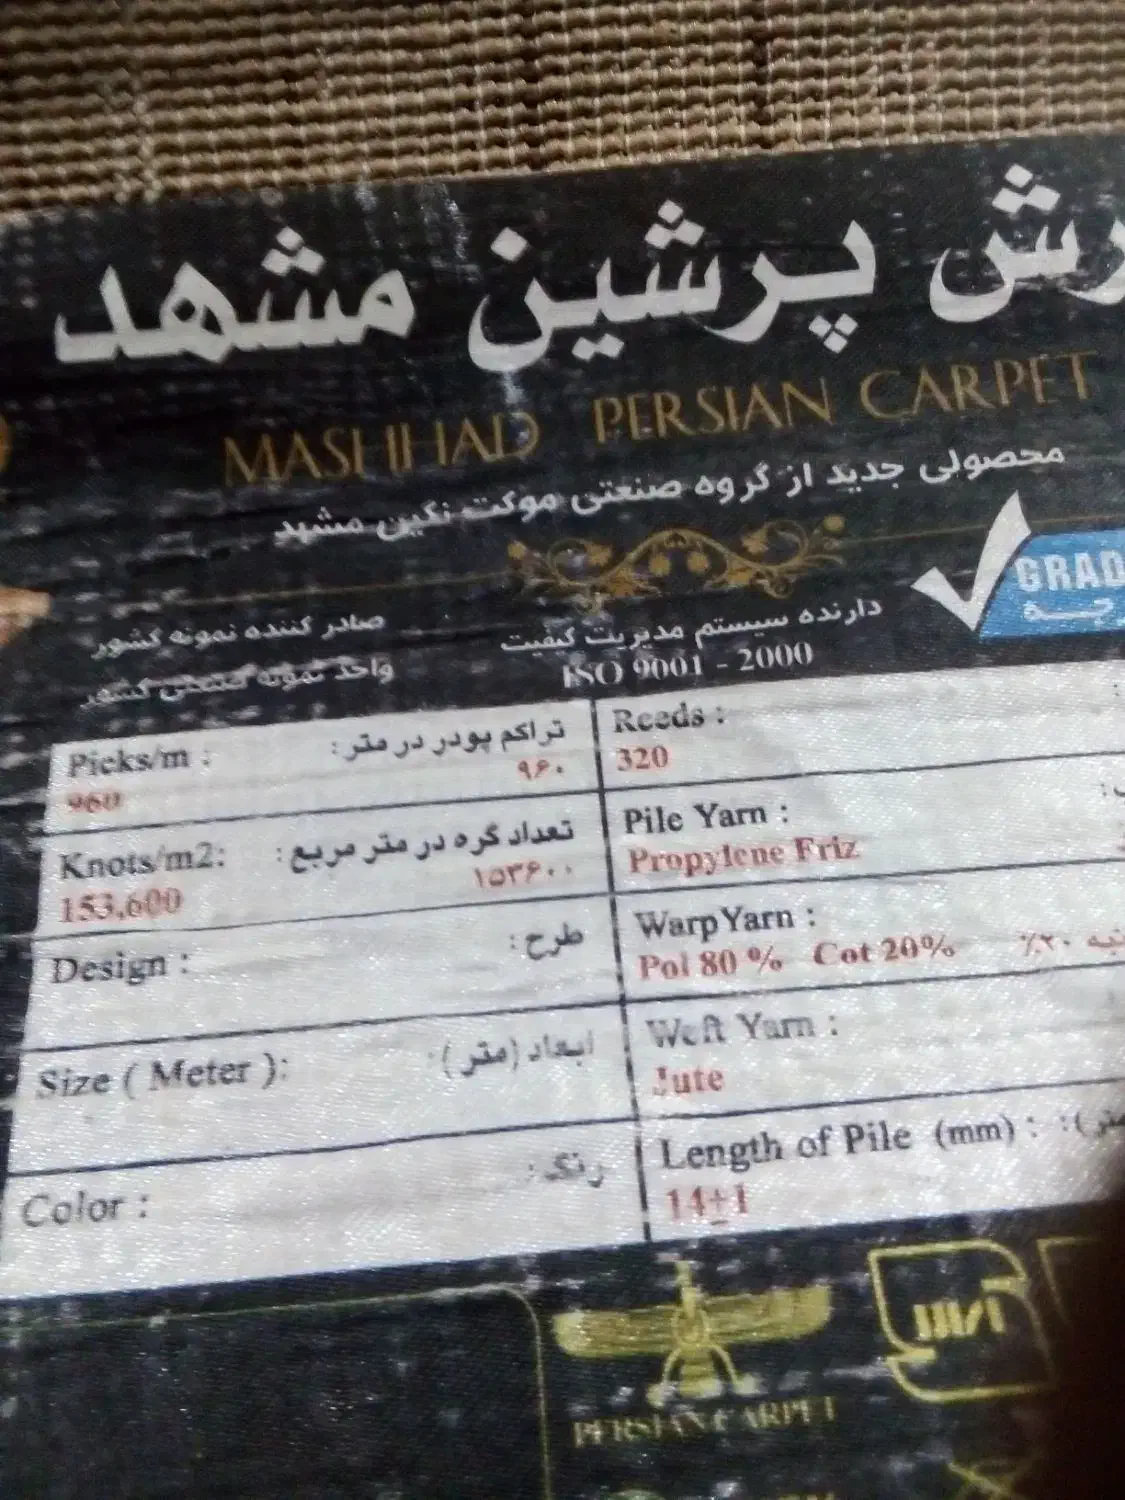 رش پرشین مشهد
MASHHAD PERSIAN CARPET
محصولی جدید از گروه صنعتی موکت نگین مشهد
GRAD
صادر کننده نمونه کشور
دارنده سیستم مدیریت کیفیت
واحد نمونه صنعتی کشور
ISO 9001 - 2000
Picks/m : تراکم پودر در متر :
960 ۹۶۰
Reeds :
320
Knots/m2: تعداد گره در متر مربع :
153,600 ۱۵۳۶۰۰
Pile Yarn :
Propylene Friz
Design : طرح :
Warp Yarn :
Pol 80 % Cot 20% نبه ۲۰٪
Size ( Meter ): ابعاد (متر) :
Weft Yarn :
Jute
Color : رنگ :
Length of Pile (mm) : متر) :
14±1
PERSIAN CARPET